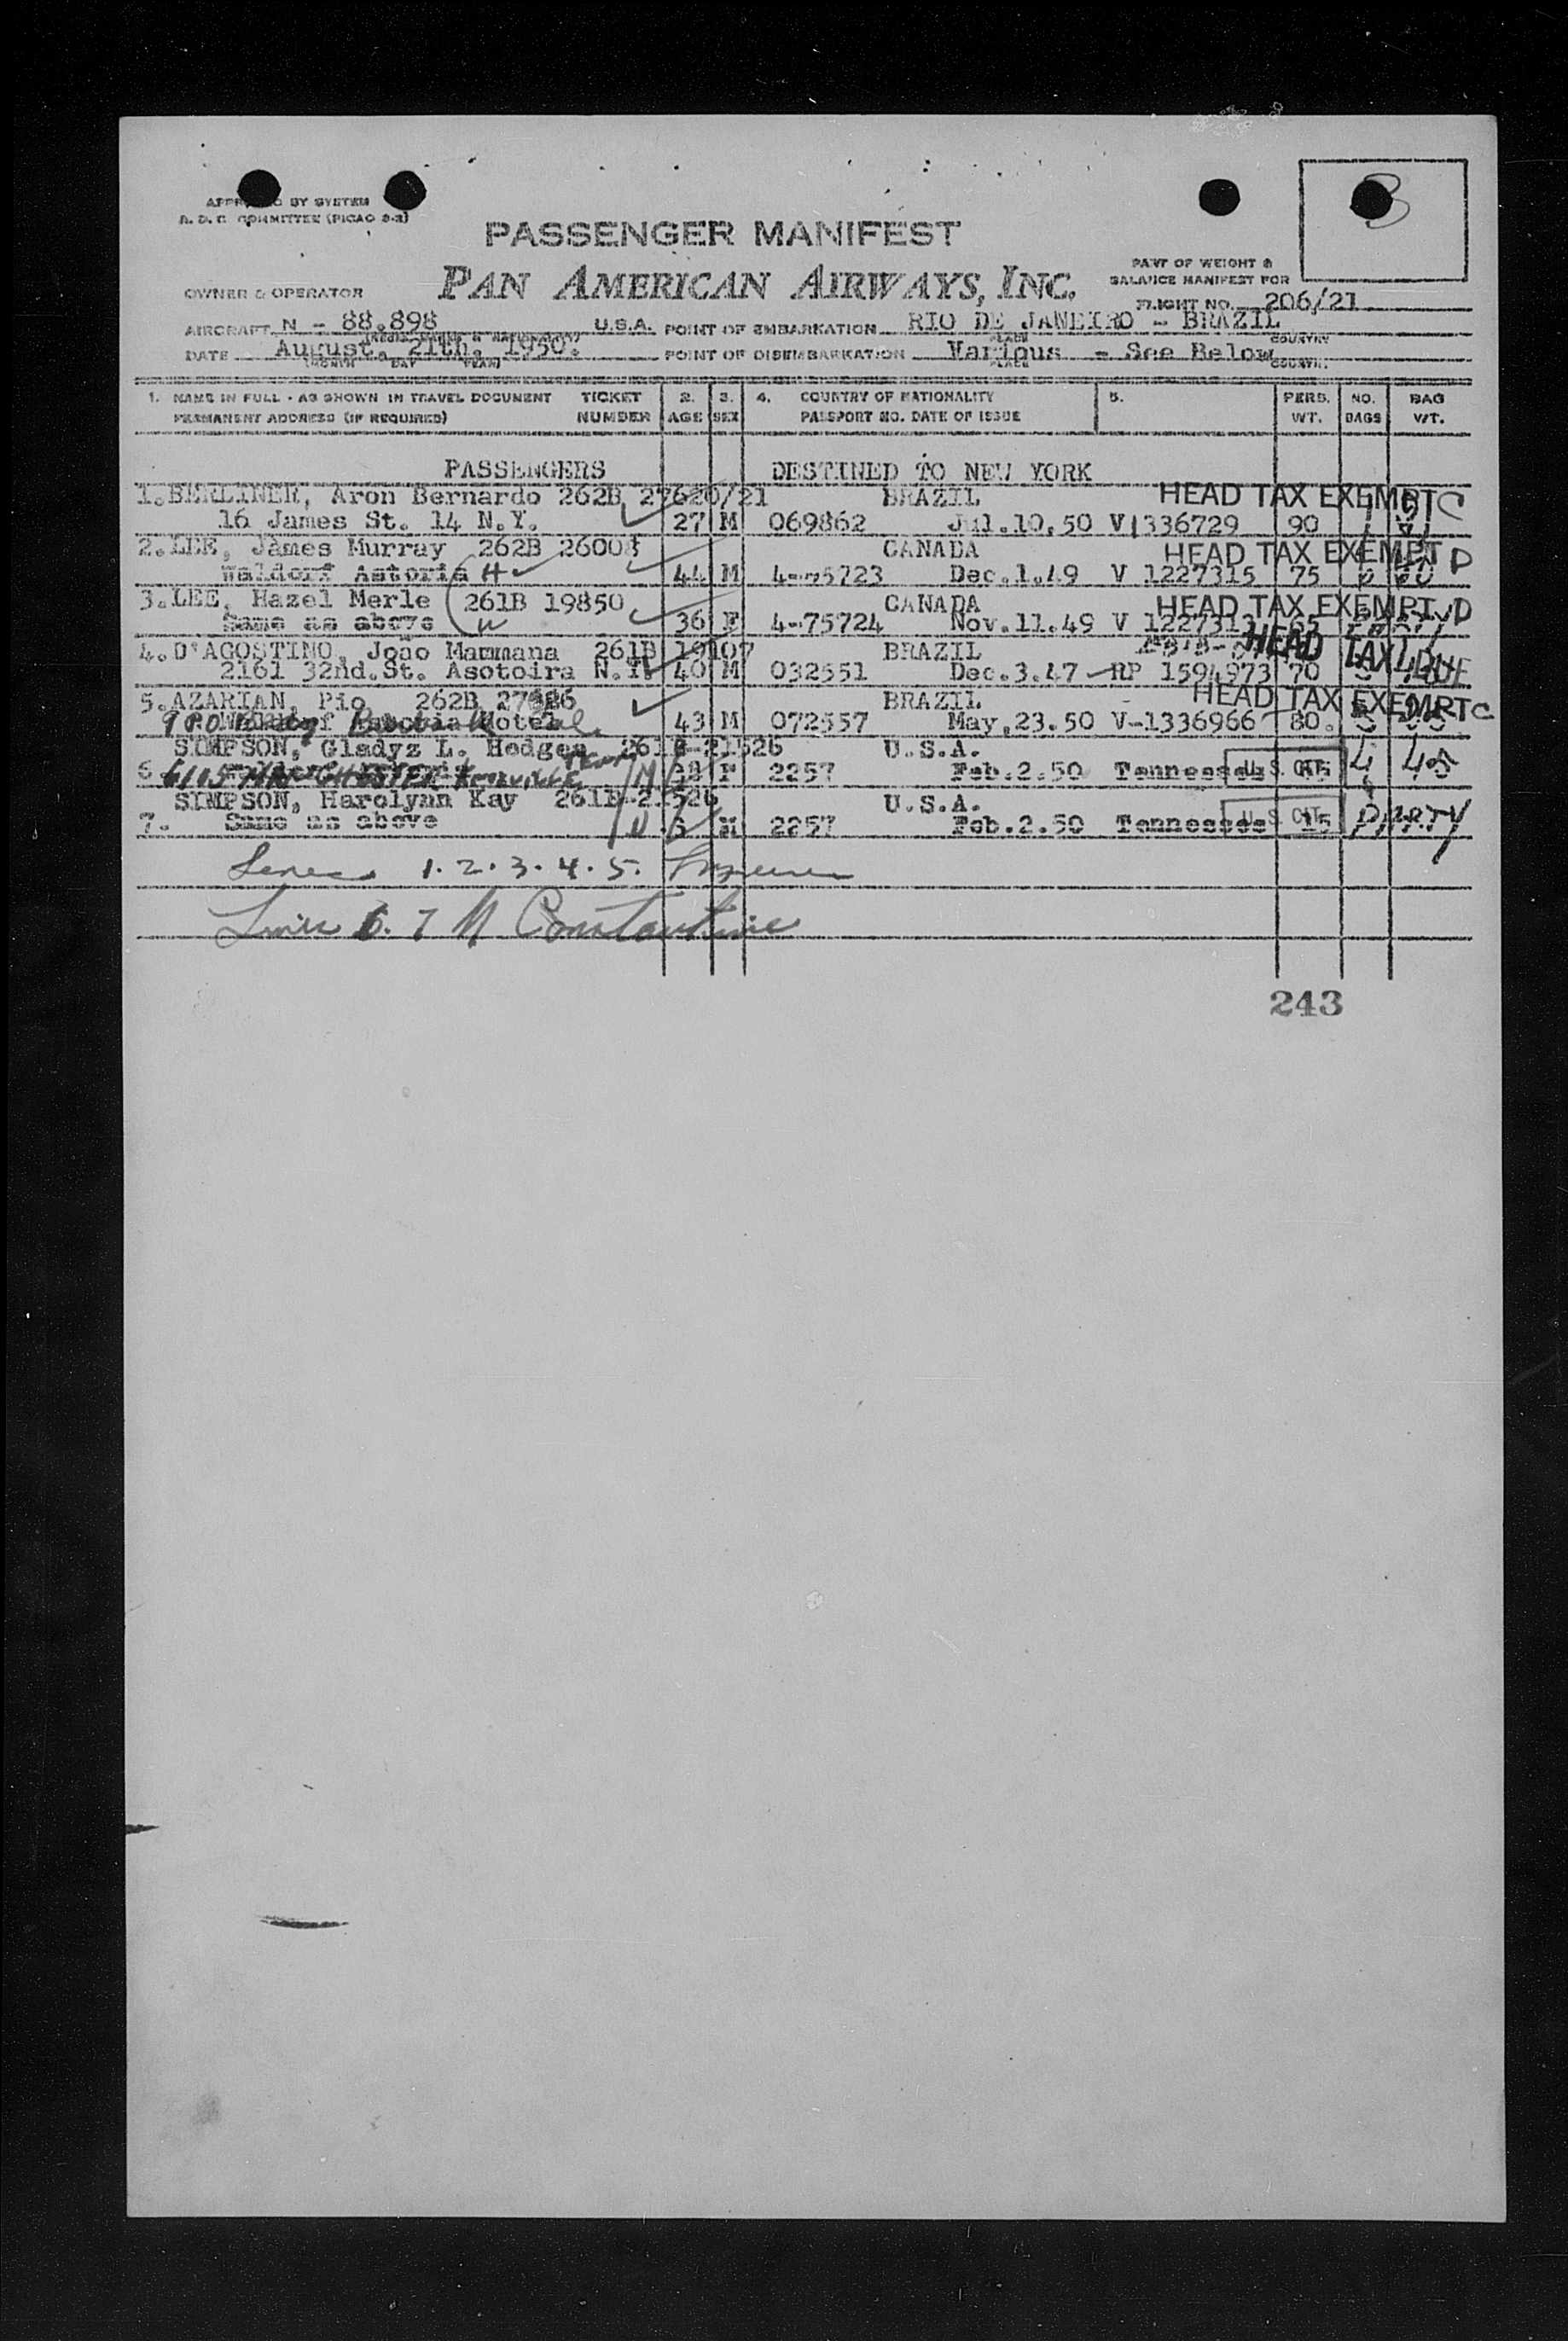 3
APPROVED BY SYSTEM
A. D. C. COMMITTEE (PICAO 9-2)
PASSENGER MANIFEST
PAN AMERICAN AIRWAYS, INC.
PART OF WEIGHT &
BALANCE MANIFEST FOR
OWNER & OPERATOR
FLIGHT NO. 206/21
AIRCRAFT N - 88.898 U.S.A. POINT OF EMBARKATION RIO DE JANEIRO - BRAZIL
PLACE COUNTRY
DATE August. 21th. 1950. POINT OF DISEMBARKATION Various - See Below
MONTH DAY YEAR PLACE
1. NAME IN FULL - AS SHOWN IN TRAVEL DOCUMENT TICKET 2. 3. 4. COUNTRY OF NATIONALITY 5. PERS. NO. BAG
PERMANENT ADDRESS (IF REQUIRED) NUMBER AGE SEX PASSPORT NO. DATE OF ISSUE WT. BAGS WT.
PASSENGERS DESTINED TO NEW YORK
1. BERLINER, Aron Bernardo 262B 27620/21 BRAZIL HEAD TAX EXEMPT C
16 James St. 14 N.Y. 27 M 069862 Jul.10,50 V 1336729 90
2. LEE, James Murray 262B 26008 CANADA HEAD TAX EXEMPT D
Waldorf Astoria H 44 M Dec.1.49 V 1227315 75
3. LEE, Hazel Merle 261B 19850 CANADA HEAD TAX EXEMPT D
Same as above 36 F 4-75724 Nov.11.49 V 1227313 65
4. D'AGOSTINO, João Mammana 261B 19107 BRAZIL HEAD TAX DUE
2161 32nd.St. Asotoira N.Y. 40 M 032551 Dec.3.47 RP 1594973 70
5. AZARIAN, Pio 262B BRAZIL HEAD TAX EXEMPT C
43 M 072557 May,23.50 V-1336966 80.
SIMPSON, Gladyz L. Hedgen 261B-21526 U.S.A. 4 45
6. 6105 MANCHESTER KNOXVILLE TENN F 2257 Feb.2.50 Tennessee U.S. CIT.
SIMPSON, Harolynn Kay 261B-21526 U.S.A.
7. Same as above M 2257 Feb.2.50 Tennessee U.S. CIT. 15
1. 2. 3. 4. 5.
6. 7 Constantine
243